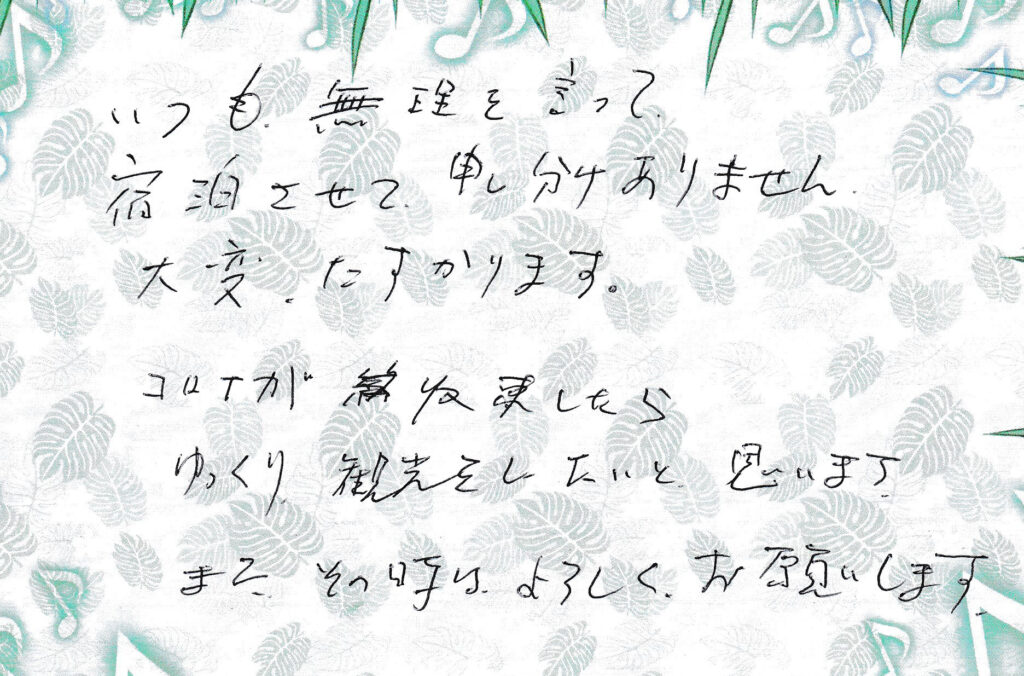 いつも無理を言って
宿泊させて、申し分けありません。
大変、たすかります。
コロナが収束したら
ゆっくり観光をしたいと思います
また、その時は、よろしく、お願いします。